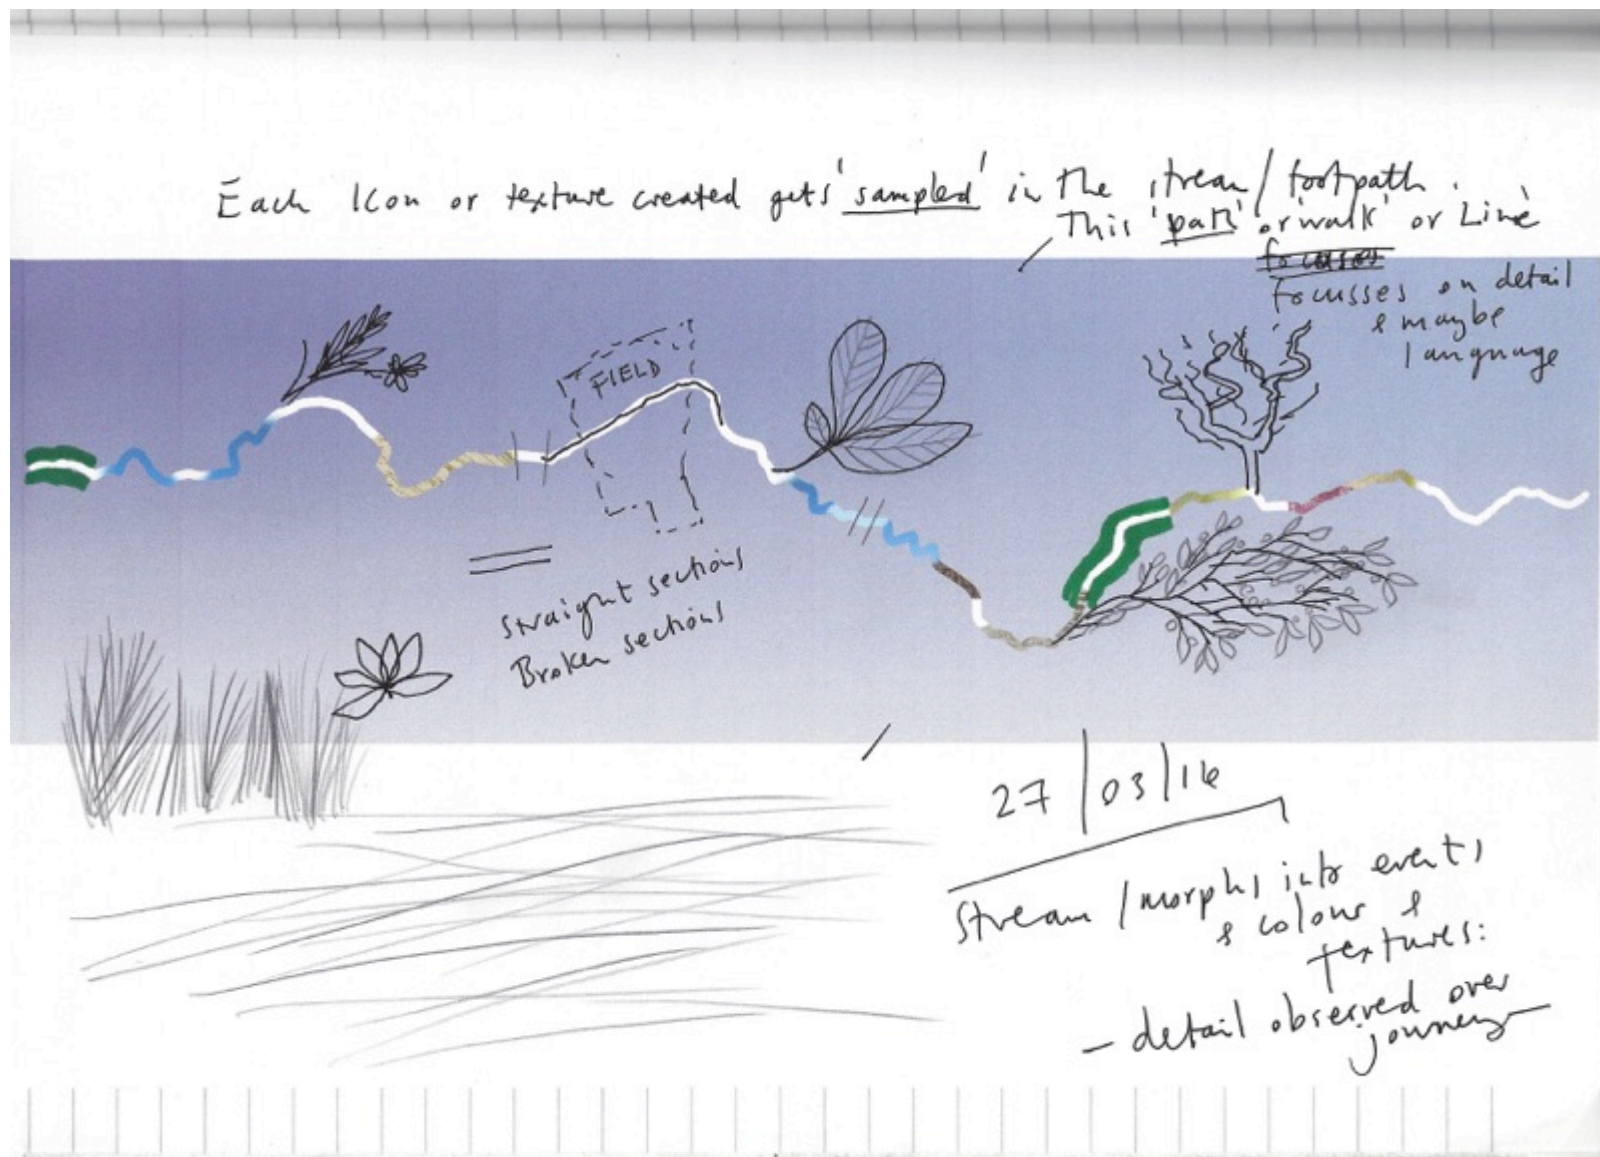 Each Icon or texture created gets 'sampled' in the stream/footpath.
This 'path' or 'walk' or Line'
focuses
focusses on detail
& maybe
language
FIELD
Straight sections
Broken sections
27/03/16
Stream/morphs into events
& colour &
textures:
- detail observed over
journey